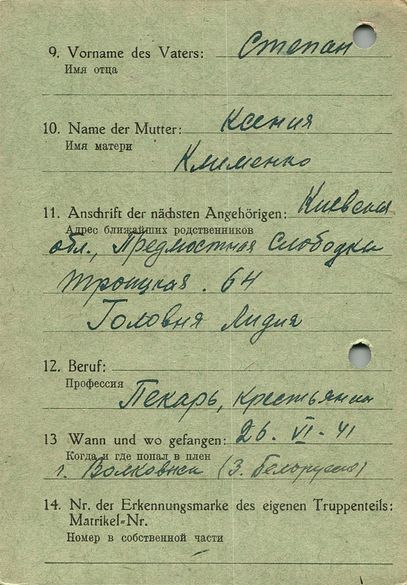 9. Vorname des Vaters: Степан
Имя отца
10. Name der Mutter: Ксения
Имя матери
Клименко
11. Anschrift der nächsten Angehörigen: Киевская
Адрес ближайших родственников
обл., Предмостная Слободка
Троицкая. 64
Головня Лидия
12. Beruf:
Профессия
Пекарь, крестьянин
13 Wann und wo gefangen: 26. VI - 41
Когда и где попал в плен
г. Волковиск (З. Белорусия)
14. Nr. der Erkennungsmarke des eigenen Truppenteils:
Matrikel-Nr.
Номер в собственной части